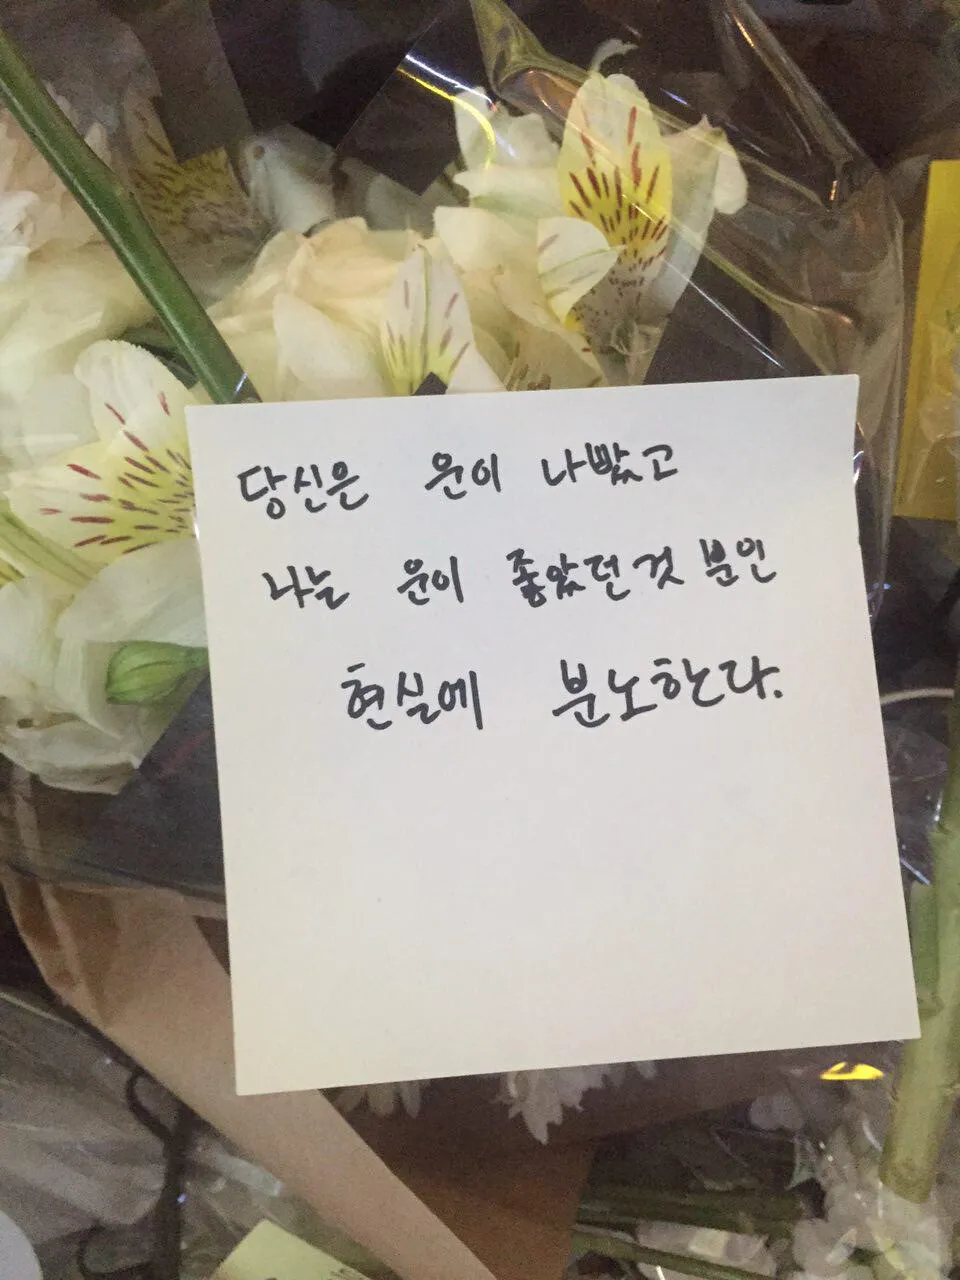 당신은 운이 나빴고
나는 운이 좋았던 것 뿐인
현실에 분노한다.